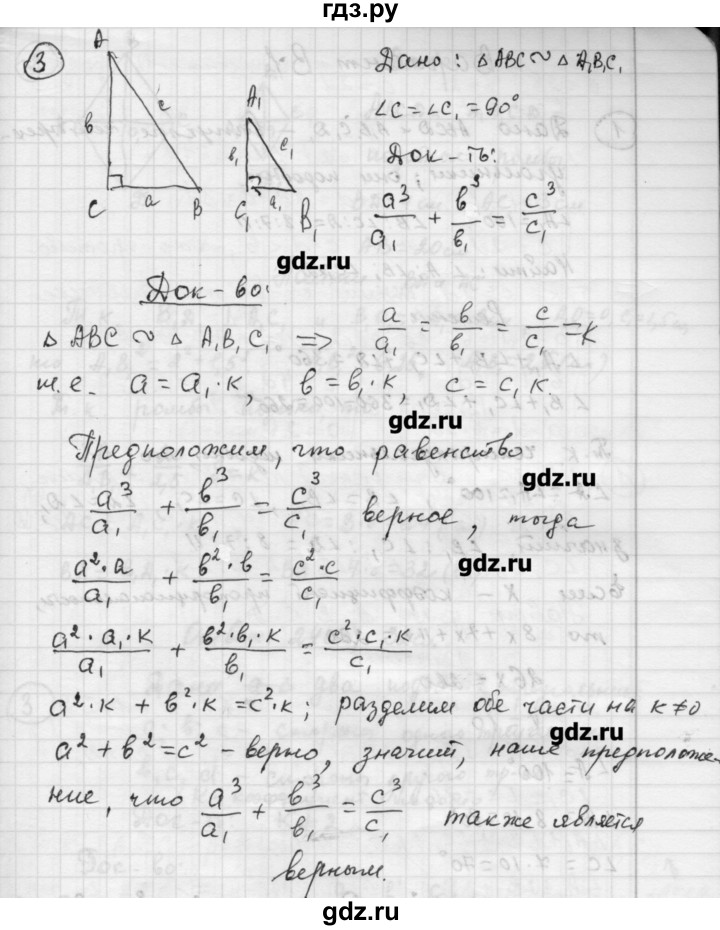 гдз.ру
3
A
в
c
C
a
B
A₁
в₁
c₁
C₁
a₁
B₁
Дано: △ ABC ~ △ A₁B₁C₁
∠C = ∠C₁ = 90°
Док-ть:
a³/a₁ + в³/в₁ = c³/c₁
gdz.ru
Док-во:
△ ABC ~ △ A₁B₁C₁ => a/a₁ = в/в₁ = c/c₁ = к
т.е. a = a₁·к, в = в₁·к, c = c₁к.
gdz.ru
Предположим, что равенство
gdz.ru
a³/a₁ + в³/в₁ = c³/c₁ верное, тогда
gdz.ru
a²·a/a₁ + в²·в/в₁ = c²·c/c₁
a²·a₁·к/a₁ + в²·в₁·к/в₁ = c²·c₁·к/c₁
a²·к + в²·к = c²·к; разделим обе части на к≠0
gdz.ru
a² + в² = c² - верно, значит, наше предположе-
ние, что a³/a₁ + в³/в₁ = c³/c₁ также является
верным.
gdz.ru